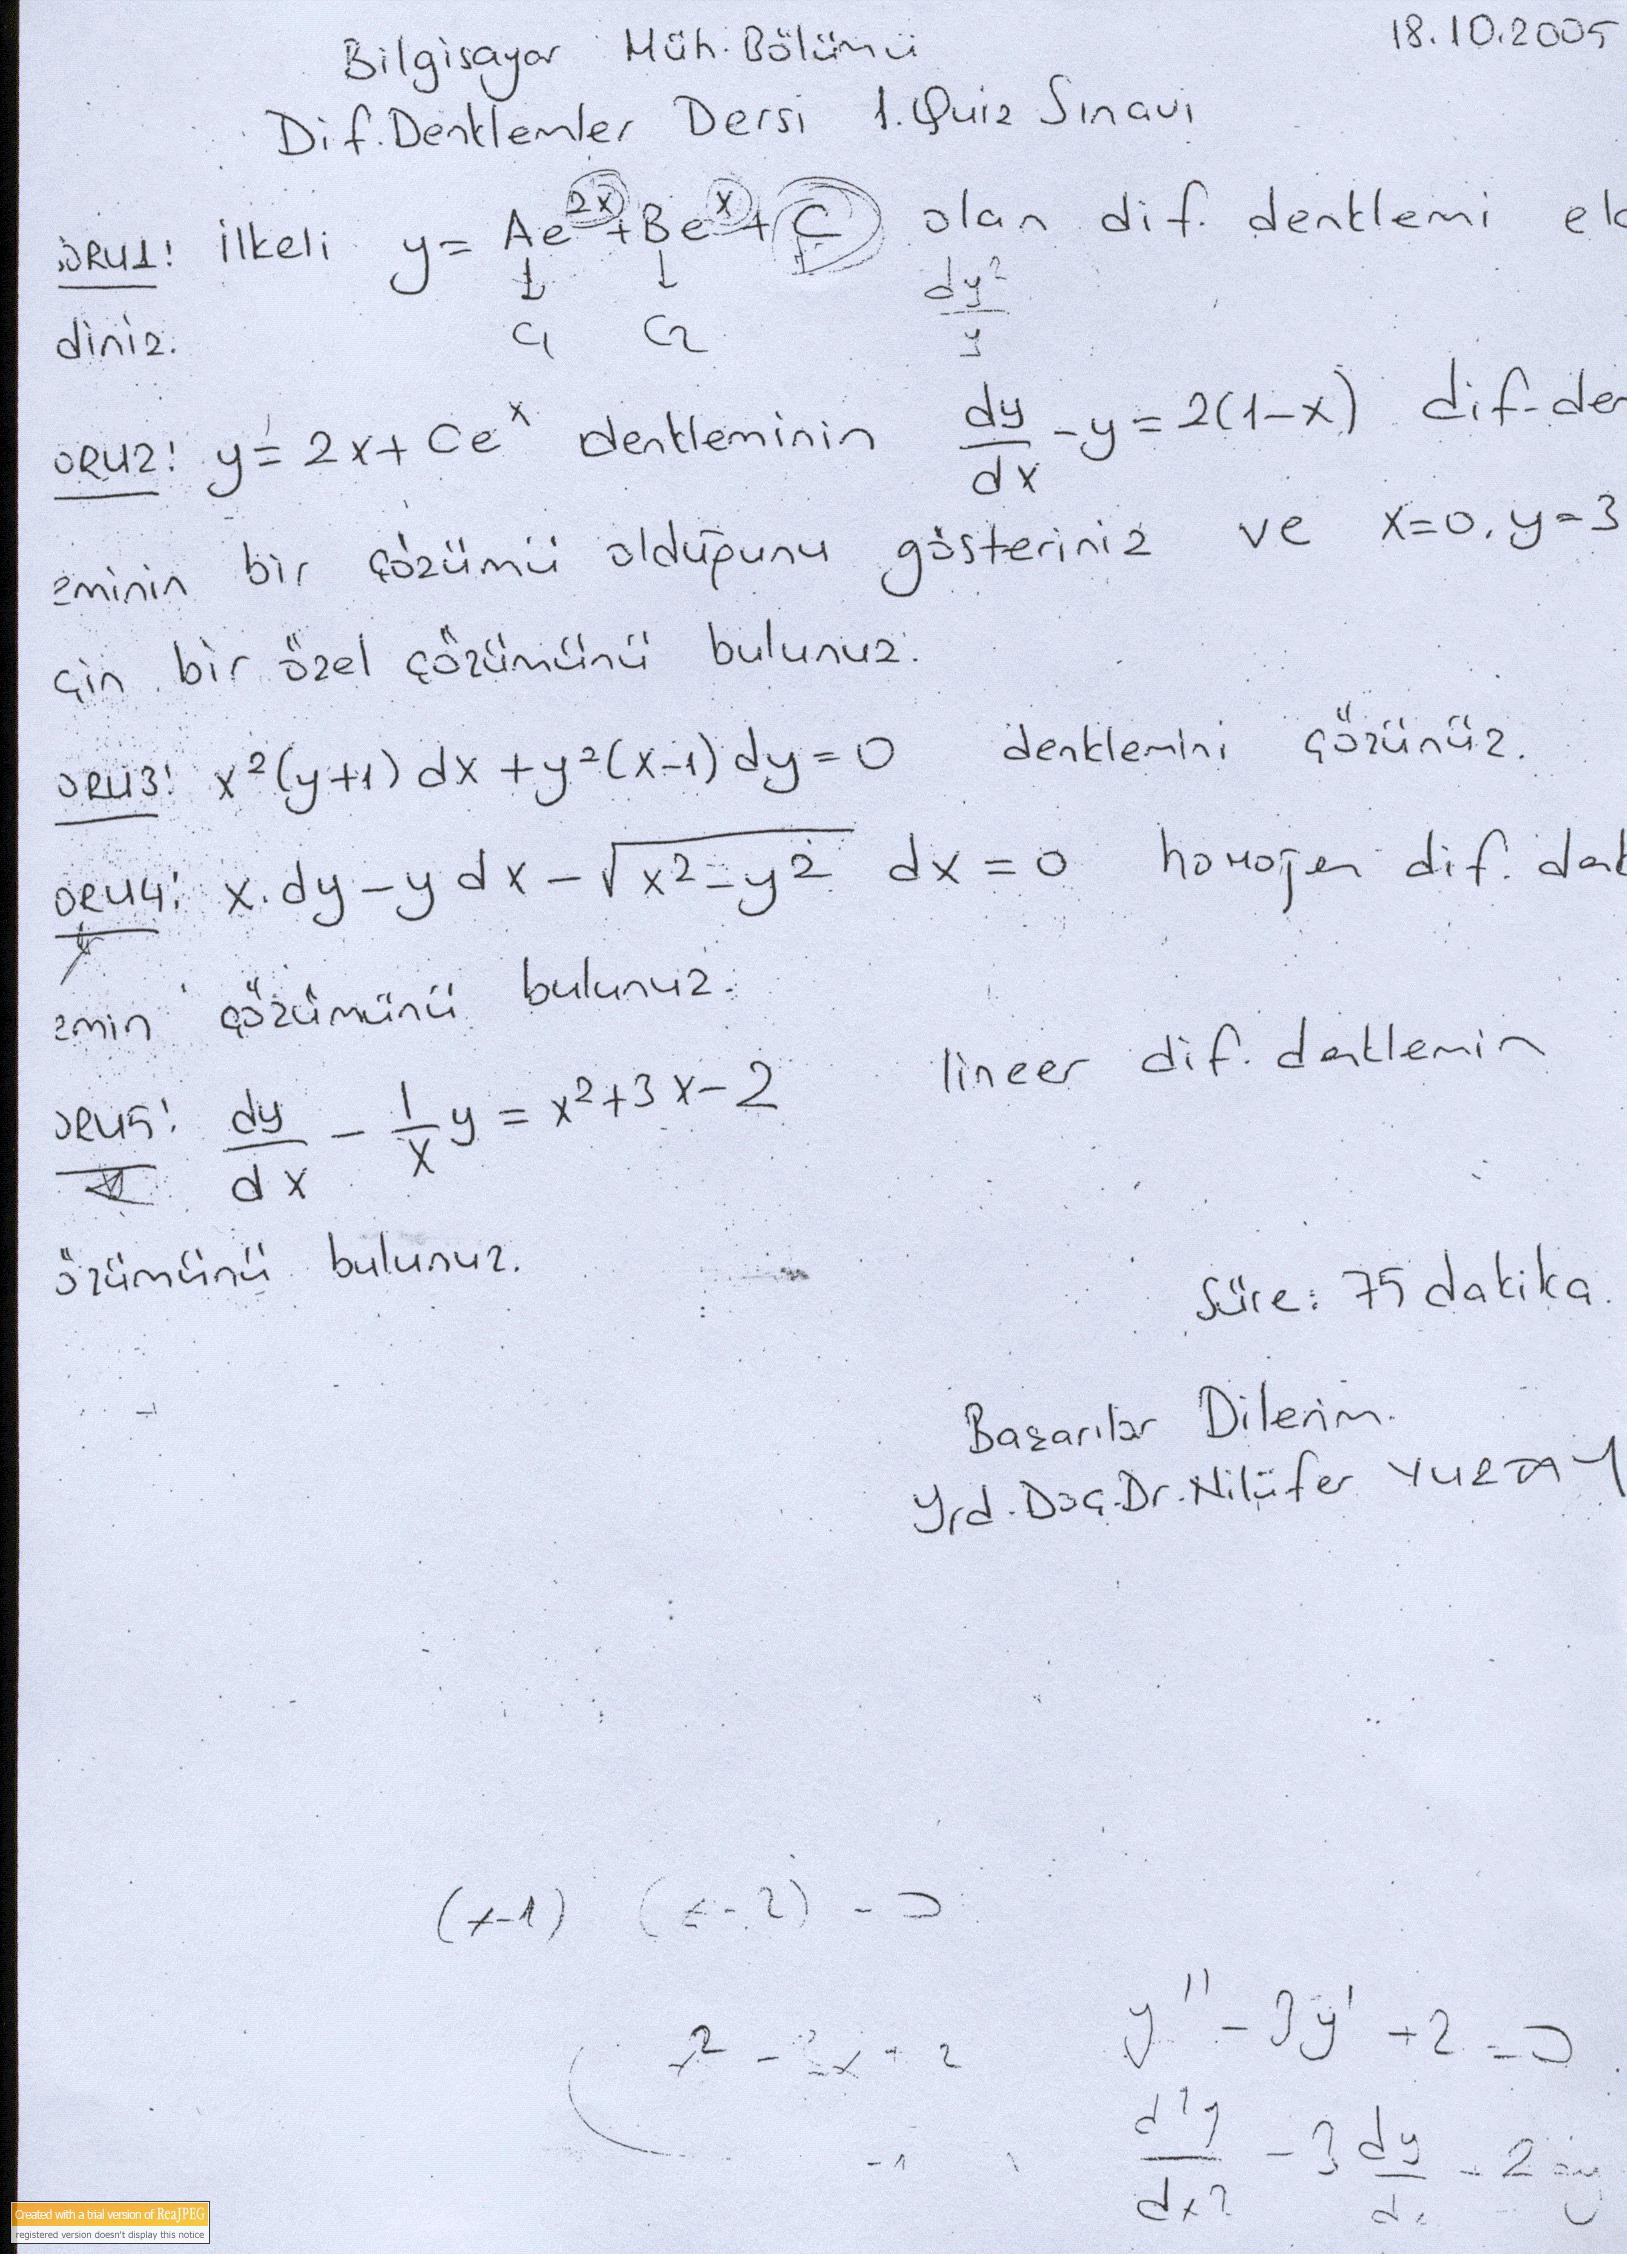 18.10.2005
Bilgisayar Müh. Bölümü
Dif. Denklemler Dersi 1. Quiz Sınavı
ORU1: İlkeli y = Ae^2x + Be^x + C olan dif. denklemi el
C1 C2 dy²/y
diniz.
ORU2: y = 2x + Ce^x denkleminin dy/dx - y = 2(1-x) dif. den
eminin bir çözümü olduğunu gösteriniz ve x=0, y=3
çin bir özel çözümünü bulunuz.
ORU3: x²(y+1)dx + y²(x-1)dy = 0 denklemini çözünüz.
ORU4: x.dy - y dx - √(x²-y²) dx = 0 homojen dif. denk
emin çözümünü bulunuz.
ORU5: dy/dx - 1/x y = x² + 3x - 2 lineer dif. denklemin
özümünü bulunuz.
Süre: 75 dakika.
Başarılar Dilerim.
Yrd. Doç. Dr. Nilüfer YURTAY
(x-1) (x-2) = 0
x² - 3x + 2
y'' - 3y' + 2 = 0
d²y/dx² - 3 dy/d
Created with a trial version of ReaJPEG
registered version doesn't display this notice